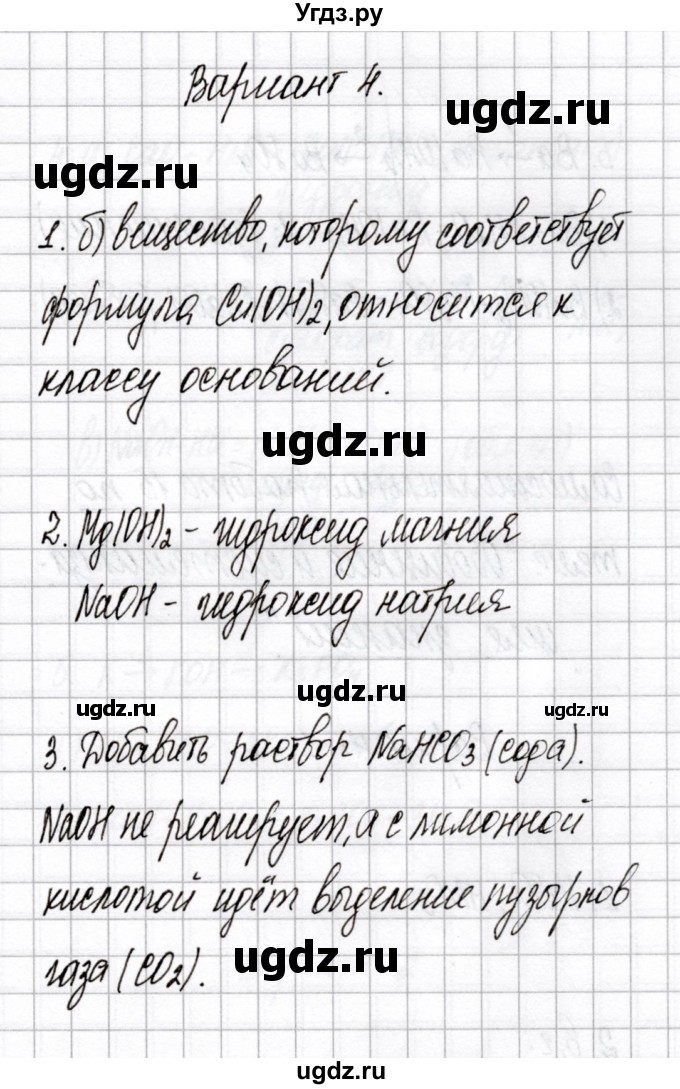 Угдз.ру
Вариант 4.
ugdz.ru
ugdz.ru
1. б) вещество, которому соответствует
формула Cu(OH)2, относится к
классу оснований.
ugdz.ru
2. Mg(OH)2 – гидроксид магния
NaOH – гидроксид натрия
ugdz.ru
ugdz.ru
ugdz.ru
3. Добавить раствор NaHCO3 (сода).
NaOH не реагирует, а с лимонной
кислотой идёт выделение пузырков
газа (CO2).
ugdz.ru
ugdz.ru